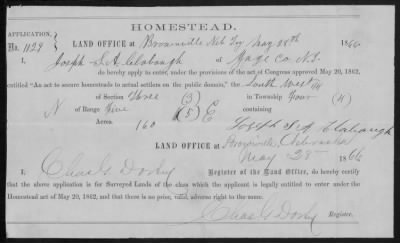 HOMESTEAD.
APPLICATION,
No. 1129
LAND OFFICE at Brownville Neb Ty May 28th 1866
I, Joseph S. A. Clabaugh of Gage Co. N.T.
do hereby apply to enter, under the provisions of the act of Congress approved May 20, 1862,
entitled "An act to secure homesteads to actual settlers on the public domain," the South West 1/4
of Section Three (3) in Township Four (4)
N of Range Five (5) E containing
160 Acres.
Joseph S A Clabaugh
LAND OFFICE at Brownville, Nebraska
May 28th 1866
I, Chas G Dorsey Register of the Land Office, do hereby certify
that the above application is for Surveyed Lands of the class which the applicant is legally entitled to enter under the
Homestead act of May 20, 1862, and that there is no prior, valid, adverse right to the same.
Chas G Dorsey
Register.